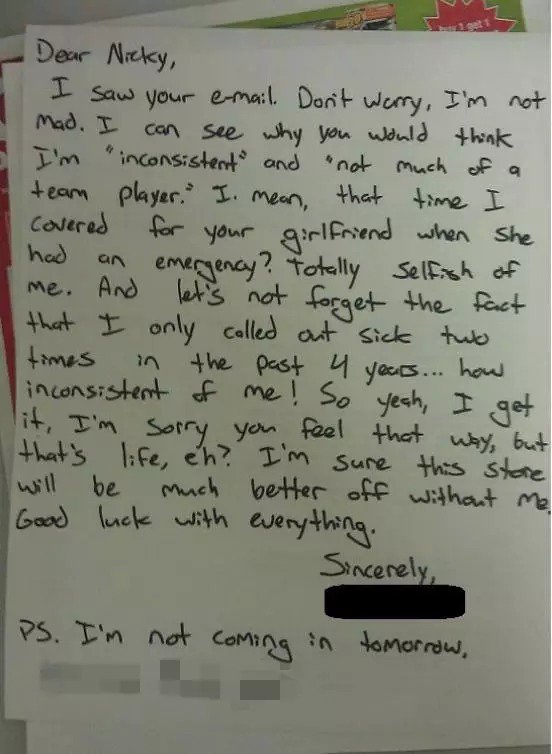 Dear Nicky,
I saw your e-mail. Don't worry, I'm not
mad. I can see why you would think
I'm "inconsistent" and "not much of a
team player." I mean, that time I
covered for your girlfriend when she
had an emergency? Totally selfish of
me. And let's not forget the fact
that I only called out sick two
times in the past 4 years... how
inconsistent of me! So yeah, I get
it, I'm sorry you feel that way, but
that's life, eh? I'm sure this store
will be much better off without me.
Good luck with everything.
Sincerely,
PS. I'm not coming in tomorrow.